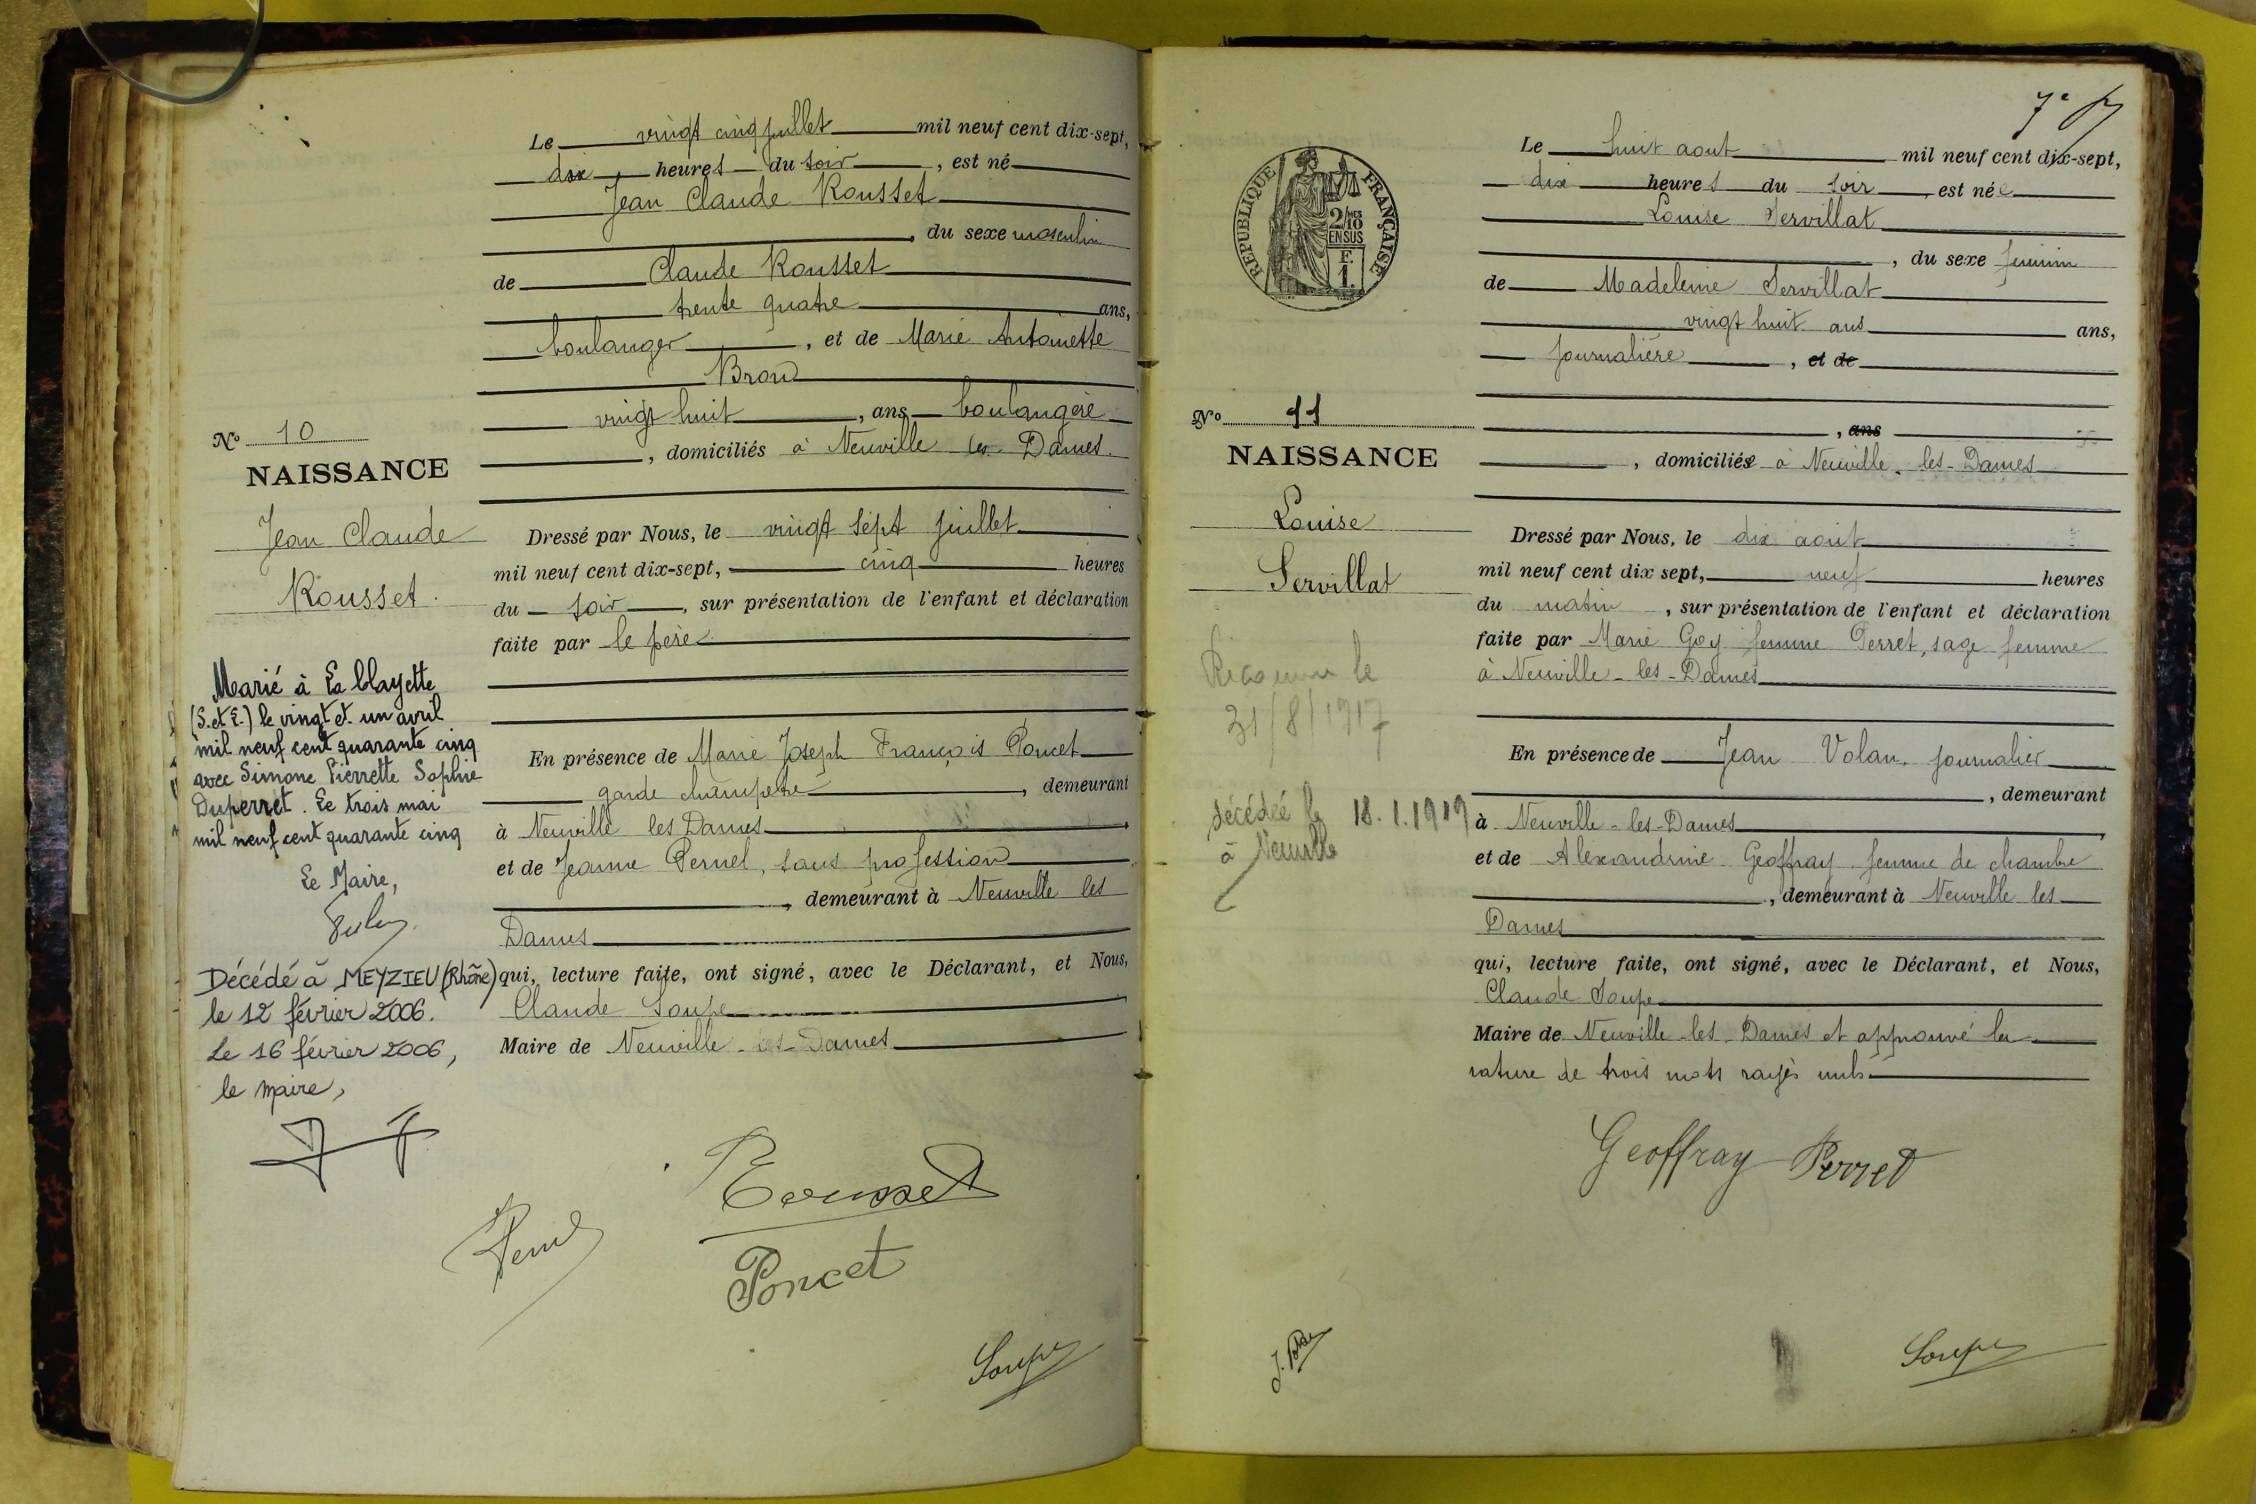 Le vingt cinq juillet mil neuf cent dix-sept,
dix heures du soir, est né
Jean Claude Rousset
, du sexe masculin
de Claude Rousset
trente quatre ans,
boulanger, et de Marie Antoinette
Brou
vingt huit, ans boulangère
, domiciliés à Neuville les Dames
Nº 10
NAISSANCE
Jean Claude
Rousset.
Dressé par Nous, le vingt sept juillet
mil neuf cent dix-sept, cinq heures
du soir, sur présentation de l'enfant et déclaration
faite par le père
Marié à La Clayette
(S. et L.) le vingt et un avril
mil neuf cent quarante cinq
avec Simone Pierrette Sophie
Duperret. Le trois mai
mil neuf cent quarante cinq
Le Maire,
En présence de Marie Joseph François Poncet
garde champêtre, demeurant
à Neuville les Dames
et de Jeanne Pernel, sans profession
, demeurant à Neuville les
Dames
Décédé à MEYZIEU (Rhône)
le 12 février 2006.
Le 16 février 2006,
le maire,
qui, lecture faite, ont signé, avec le Déclarant, et Nous,
Claude Soupe
Maire de Neuville-les-Dames
Rousset
Poncet
Soupe
REPUBLIQUE FRANÇAISE
2/10 MES
EN SUS
F.
1.
Le huit aout mil neuf cent dix-sept,
dix heures du soir, est née
Louise Servillat
, du sexe féminin
de Madeleine Servillat
vingt huit ans ans,
journalière, et de
, ans
, domiciliée à Neuville-les-Dames
Nº 11
NAISSANCE
Louise
Servillat
Dressé par Nous, le dix août
mil neuf cent dix sept, neuf heures
du matin, sur présentation de l'enfant et déclaration
faite par Marie Goy femme Perret, sage femme
à Neuville-les-Dames
Reconnue le
31/8/1917
En présence de Jean Volan, journalier
, demeurant
à Neuville-les-Dames
et de Alexandrine Geoffray femme de chambre
, demeurant à Neuville les
Dames
décédée le 18.1.1919
à Neuville
qui, lecture faite, ont signé, avec le Déclarant, et Nous,
Claude Soupe
Maire de Neuville-les-Dames et approuvé la
rature de trois mots rayés nuls
Geoffray Perret
Soupe